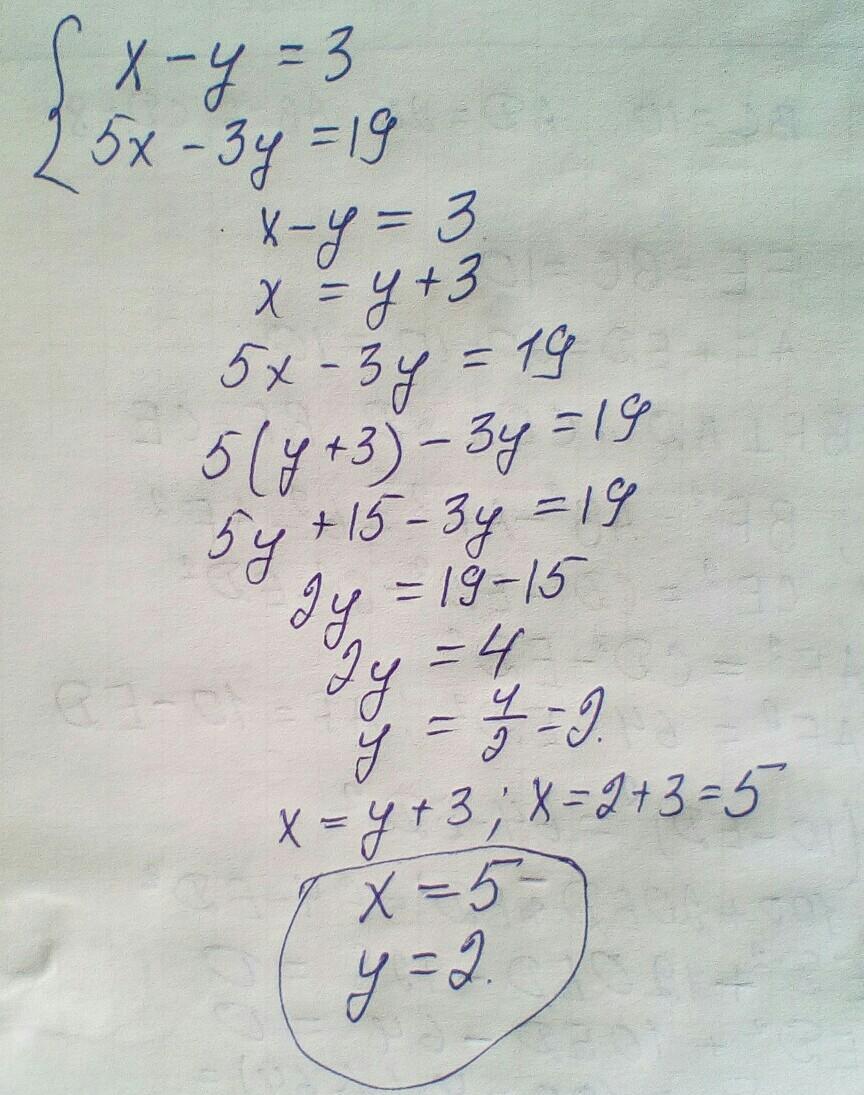 x - y = 3
5x - 3y = 19
x - y = 3
x = y + 3
5x - 3y = 19
5(y + 3) - 3y = 19
5y + 15 - 3y = 19
2y = 19 - 15
2y = 4
y = 4/2 = 2.
x = y + 3; x = 2 + 3 = 5
x = 5
y = 2.